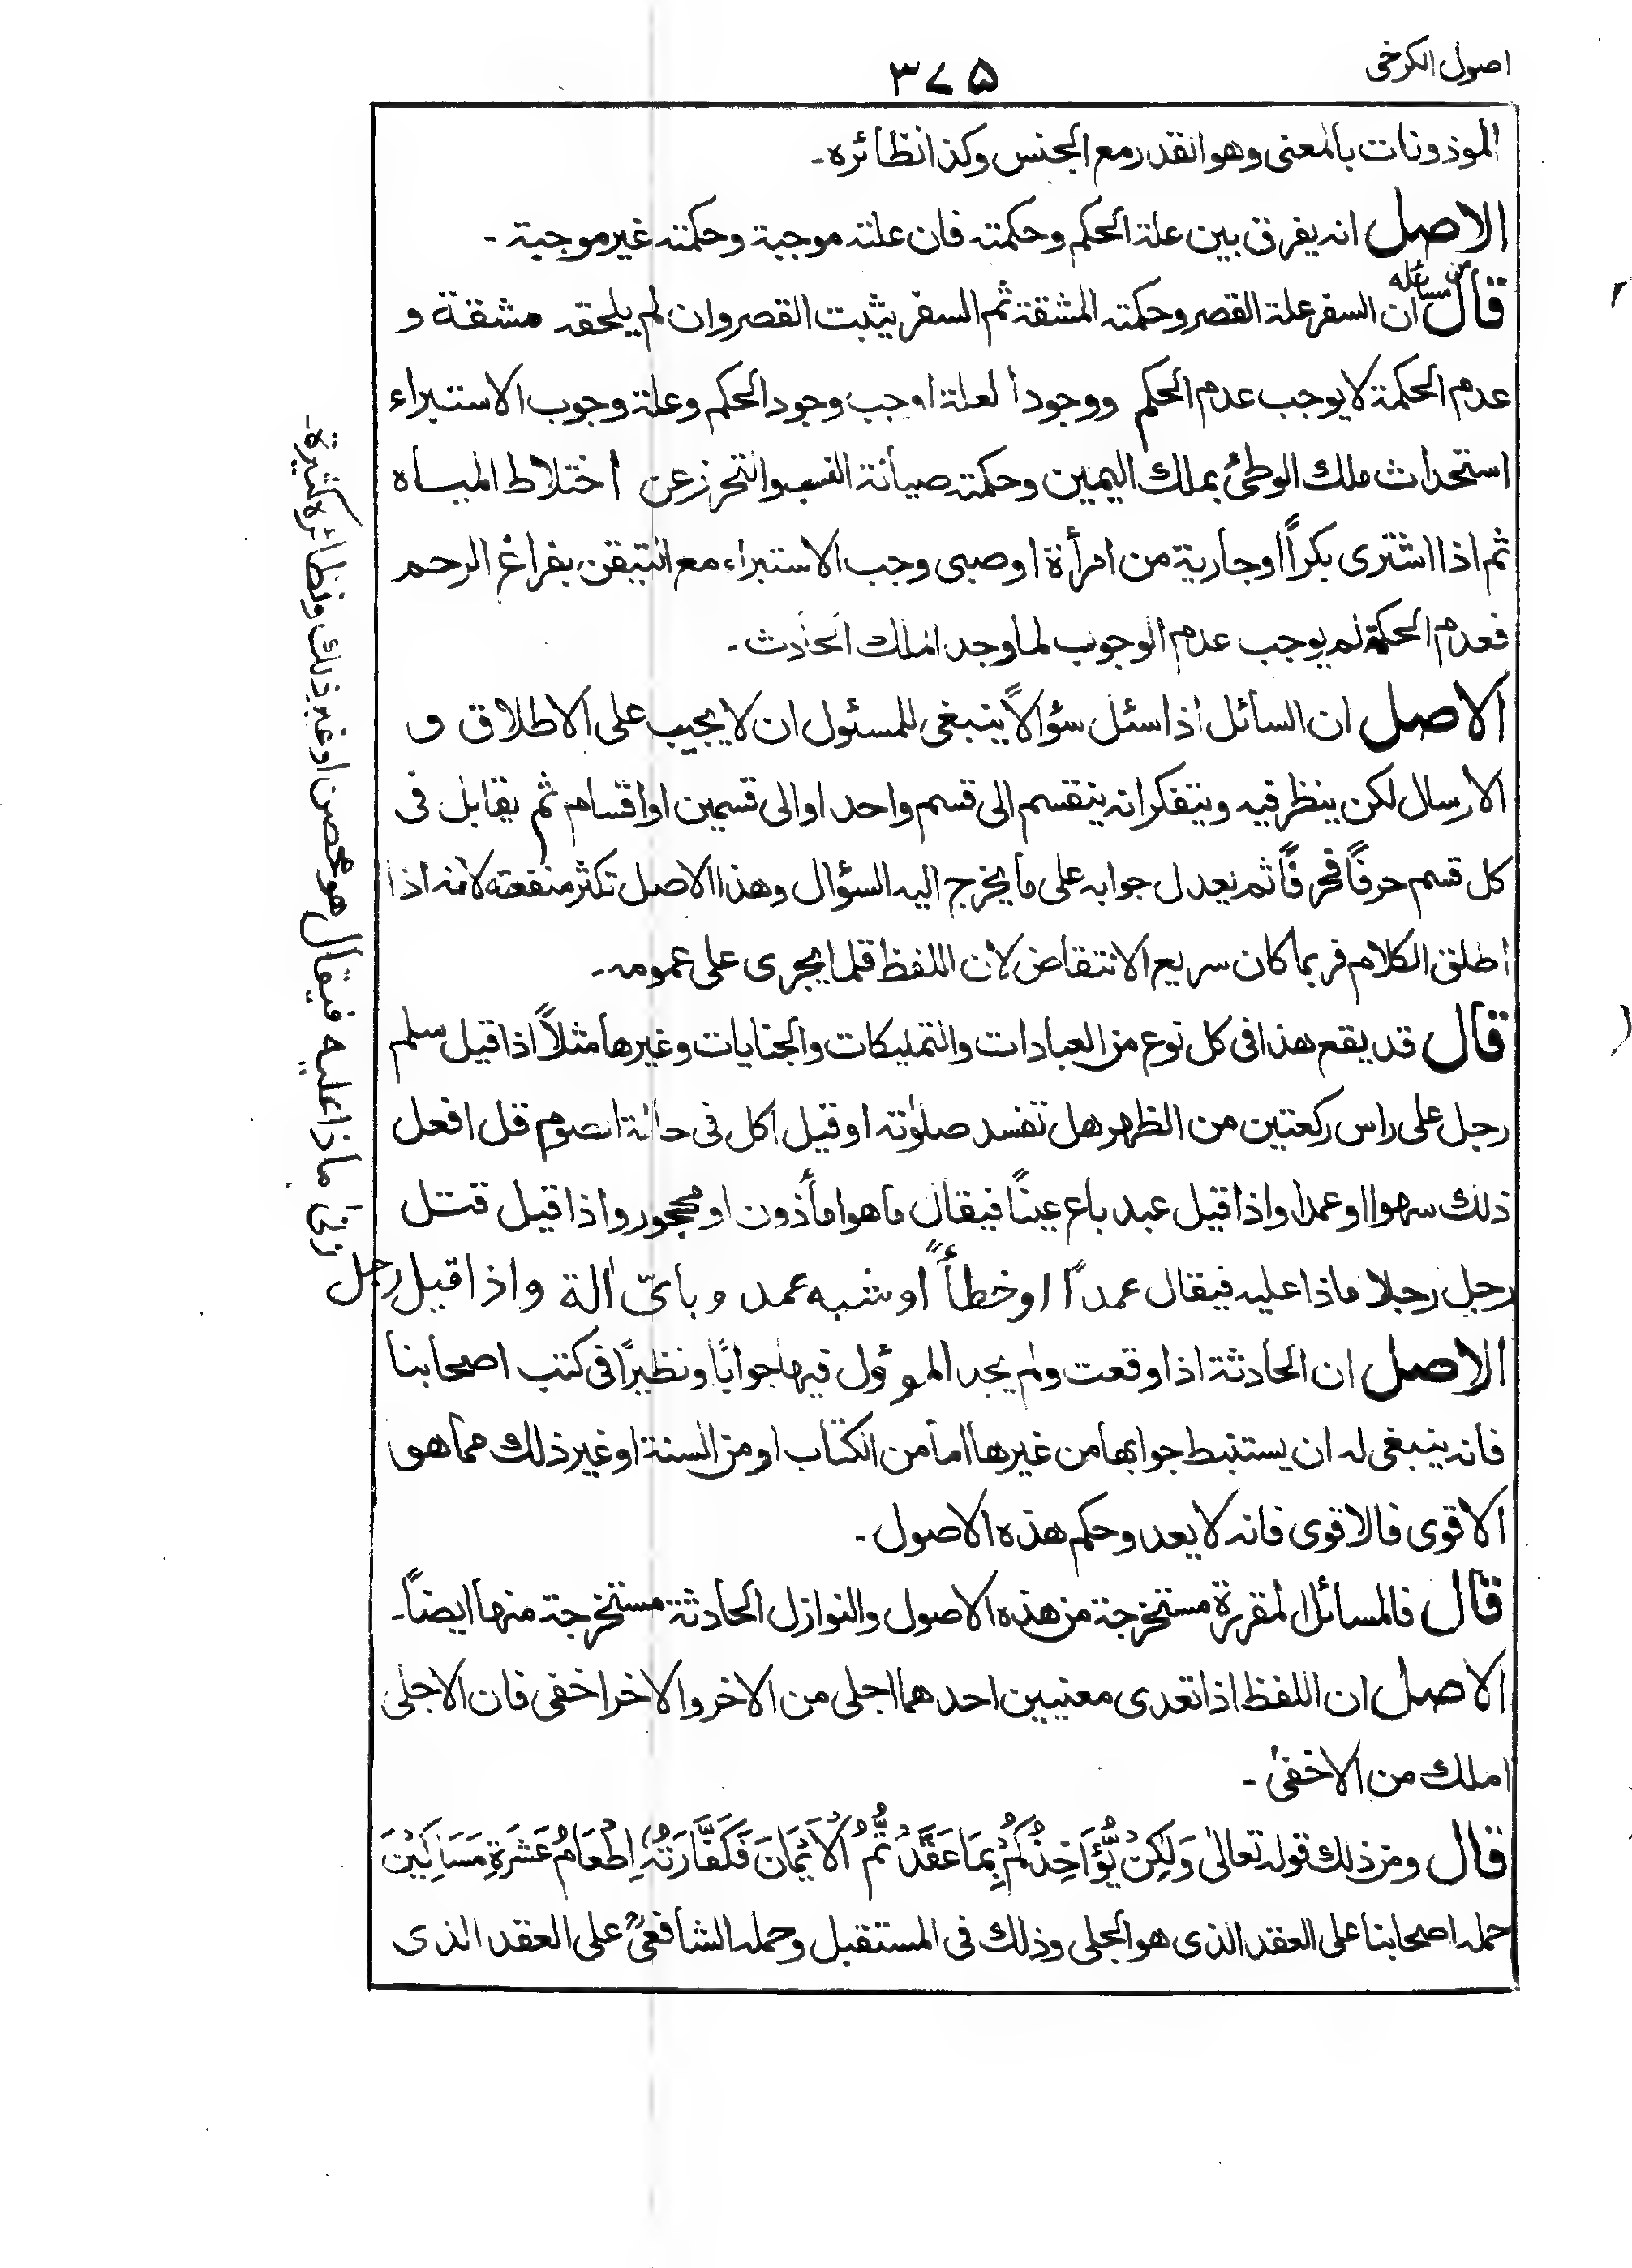 اصول الكرخی
۳۷۵
الموذونات بالمعنی وهو القدر مع الجنس وكذا نظائره۔
الاصل انه يفرق بين علة الحكم وحكمته فان علته موجبة وحكمته غير موجبة۔
قال من مسائله ان السفر علة القصر وحكمته المشقة ثم السفر يثبت القصر وان لم يلحقه مشقة و
عدم الحكمة لا يوجب عدم الحكم ووجود العلة اوجب وجود الحكم وعلة وجوب الاستبراء
استحداث ملك الوطئ بملك اليمين وحكمته صيانة النسب والتحرز عن اختلاط المياه
ثم اذا اشتری بكراً او جارية من امرأة او صبی وجب الاستبراء مع التيقن بفراغ الرحم
فعدم الحكمة لم يوجب عدم الوجوب لما وجد الملك الحادث۔
الاصل ان السائل اذا سئل سؤالاً ينبغی للمسئول ان لا يجيب علی الاطلاق و
الارسال لكن ينظر فيه ويتفكر انه ينقسم الی قسم واحد او الی قسمين او اقسام ثم يقابل فی
كل قسم حرفاً فحرفاً ثم يعدل جوابه علی ما يخرج اليه السؤال وهذا الاصل تكثر منفعته لانه اذا
اطلق الكلام فربما كان سريع الانتقاض لان اللفظ قلما يجری علی عمومه۔
قال قد يقع هذا فی كل نوع من العبادات والتمليكات والجنايات وغيرها مثلاً اذا قيل سلم
رجل علی راس ركعتين من الظهر هل تفسد صلوٰته او قيل اكل فی حالة الصوم قل افعل
ذلك سهوا او عمدا واذا قيل عبد باع عيناً فيقال ما هو امأذون او محجور واذا قيل قتل
رجل رجلا ماذا عليه فيقال عمداً او خطأً او شبه عمد و بایّ اٰلة واذا قيل رجل
زنیٰ ماذا عليه فيقال هو محصن او غير ذلك ونظائره كثيرة۔
الاصل ان الحادثة اذا وقعت ولم يجد الموؤل فيها جوابًا ونظيرًا فی كتب اصحابنا
فانه ينبغی له ان يستنبط جوابها من غيرها اما من الكتاب او من السنة او غير ذلك مما هو
الاقوی فالاقوی فانه لا يعدو حكم هذه الاصول۔
قال فالمسائل المقررة مستخرجة من هذه الاصول والنوازل الحادثة مستخرجة منها ايضاً۔
الاصل ان اللفظ اذا تعدی معنيين احدهما اجلی من الاخر والاخر اخفی فان الاجلی
املك من الاخفیٰ۔
قال ومن ذلك قوله تعالیٰ وَلٰكِنْ يُّؤَاخِذُكُمْ بِمَا عَقَّدْتُّمُ الْاَيْمَانَ فَكَفَّارَتُهٗ اِطْعَامُ عَشَرَةِ مَسَاكِيْنَ
حمله اصحابنا علی العقد الذی هو الجلی وذلك فی المستقبل وحمله الشافعیؒ علی العقد الذی